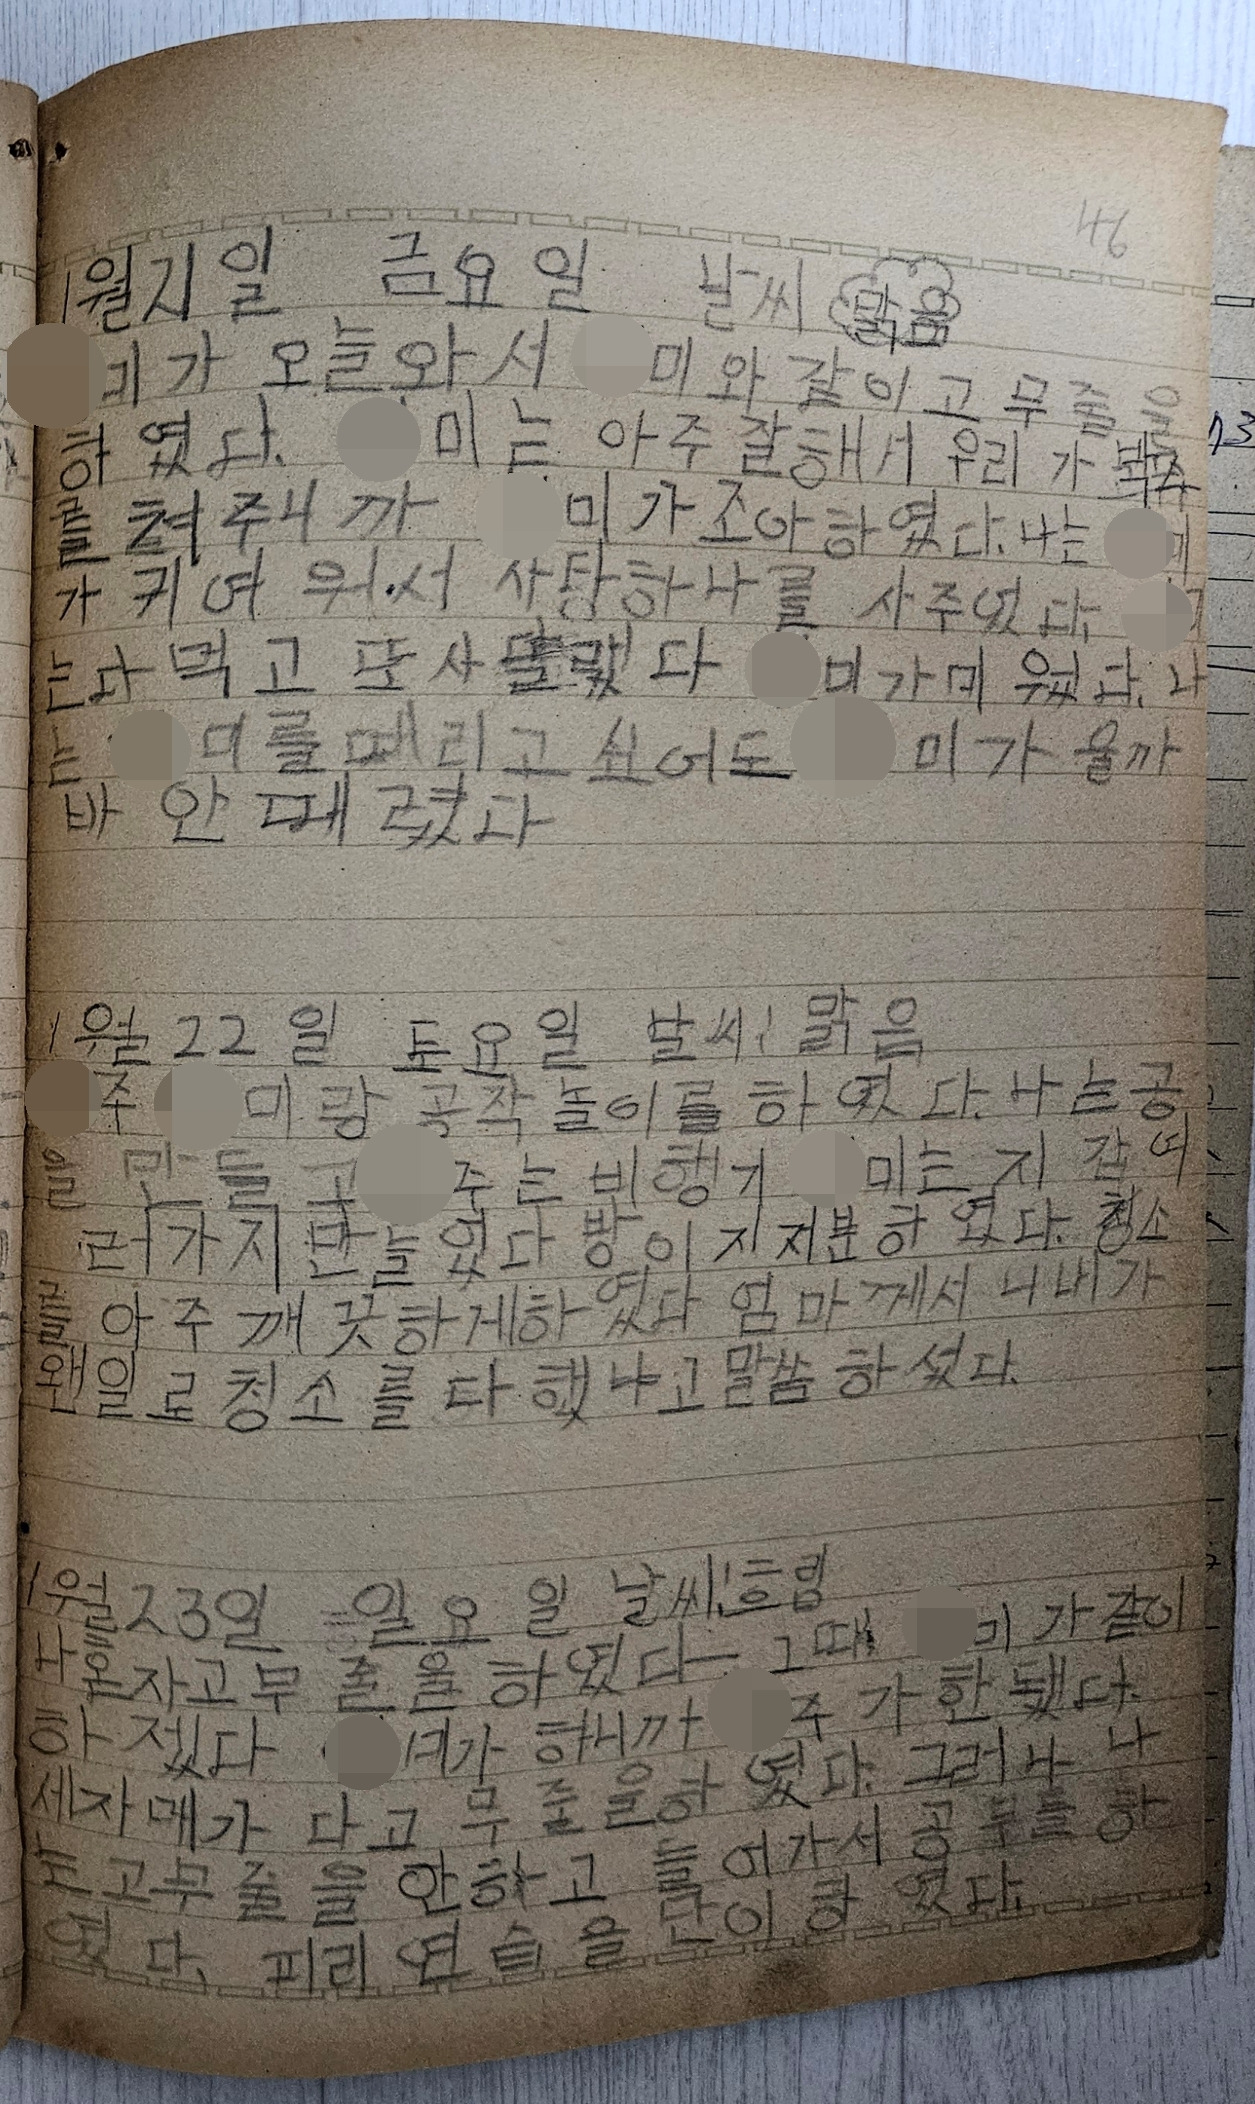 46
1월 일 금요일 날씨 맑음
미가 오늘와서 미와 같이 고무줄을
하였다. 미는 아주 잘해서 우리가 박수
를 쳐주니까 미가 조아하였다. 나는 미
가 귀여워서 사탕하나를 사주었다.
는 다 먹고 또 사달랬다 미가 미웠다. 나
는 미를 때리고 싶어도 미가 울까
바 안 때렸다
1월 22일 토요일 날씨: 맑음
주 미랑 공작놀이를 하였다. 나는 공
을 만들고 주는 비행기 미는 지갑 여
러가지 만늘었다 방이 지저분하였다. 청소
를 아주 깨끗하게하였다 엄마께서 니네가
왠일로 청소를 다 했냐고 말씀하셨다.
1월 23일 일요일 날씨: 흐림
나 혼자 고무줄을 하였다 그때 미가 같이
하쟀다 미가 하니까 주가 한댔다.
세자매가 다 고무줄을 하였다. 그러나 나
는 고무줄을 안하고 들어가서 공부를 하
였다. 피리 연습을 하였다.